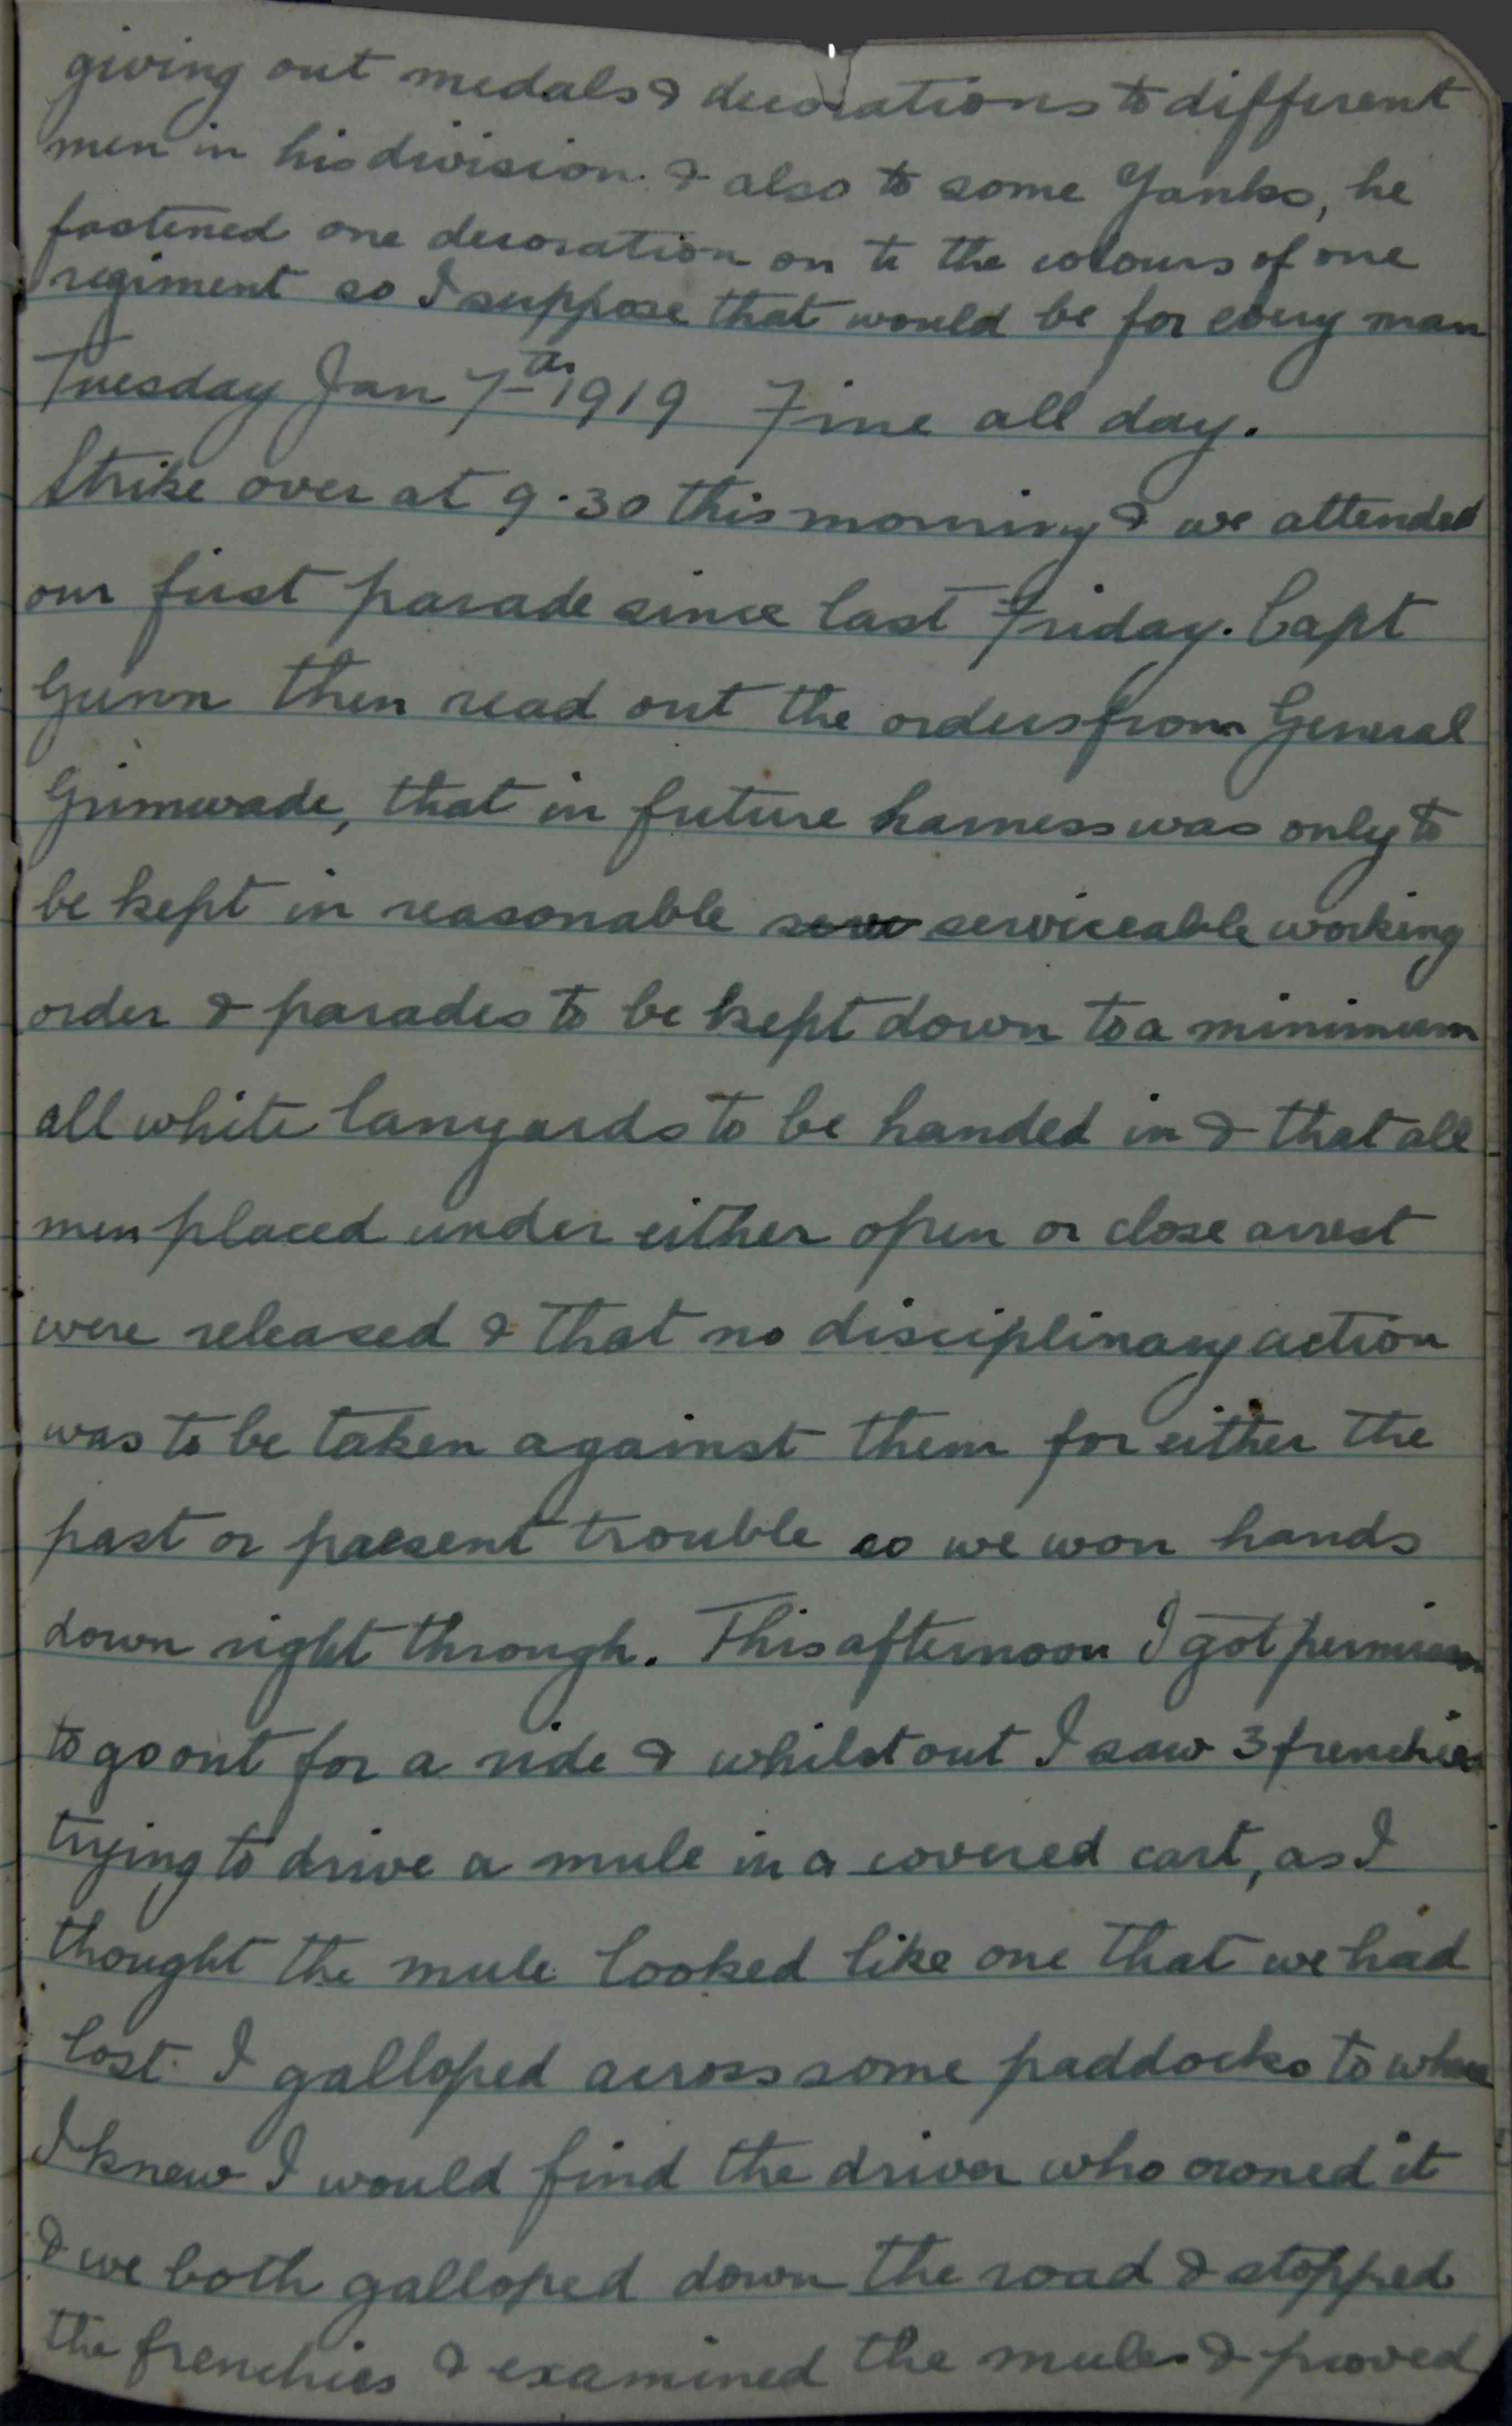 giving out medals & decorations to different
men in his division. & also to some Yanks, he
fastened one decoration on to the colours of one
regiment so I suppose that would be for every man
Tuesday Jan 7th 1919 Fine all day.
Strike over at 9.30 this morning & we attended
our first parade since last Friday. Capt
Gunn then read out the orders from General
Grimwade, that in future harness was only to
be kept in reasonable serviceable working
order & parades to be kept down to a minimum
all white lanyards to be handed in & that all
men placed under either open or close arrest
were released & that no disciplinary action
was to be taken against them for either the
past or present trouble so we won hands
down right through. This afternoon I got permission
to go out for a ride & whilst out I saw 3 frenchies
trying to drive a mule in a covered cart, as I
thought the mule looked like one that we had
lost I galloped across some paddocks to where
I knew I would find the driver who owned it
& we both galloped down the road & stopped
the frenchies & examined the mules & proved